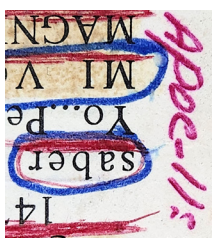 14
saber
Yo..Pe
MI V
MAGN
Apoc-11: